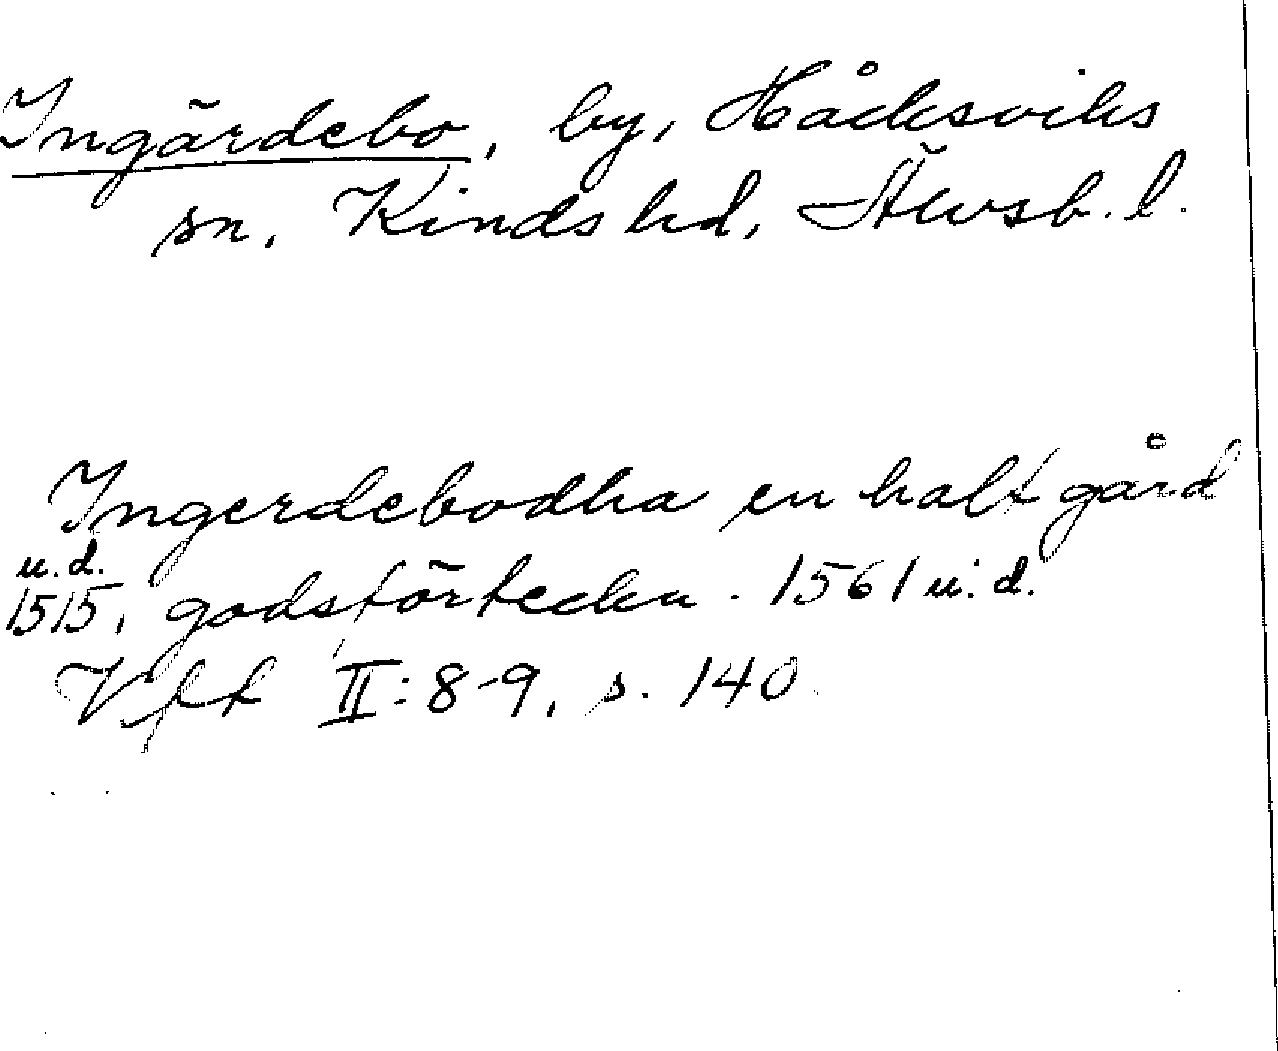 Ingärdebo, by, Håcksviks
sn, Kinds hd, Älvsb. l.
Ingerdebodha en half gård
u.d.
1515, godsförteckn. 1561 u.d.
Vff II:8-9, s. 140